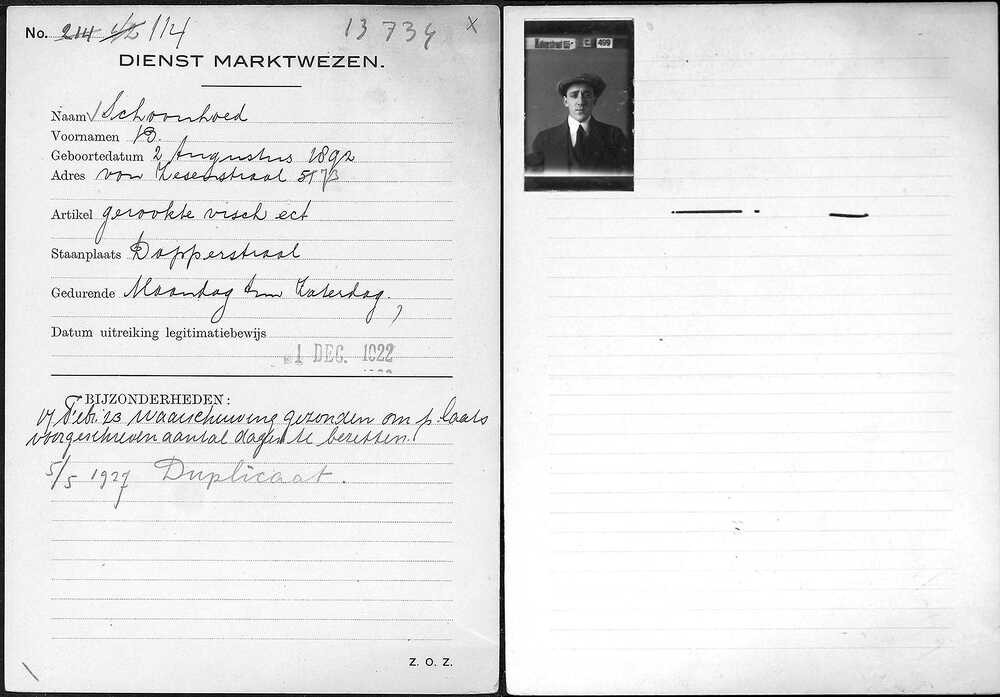 No. 214 42 114 13734 x
DIENST MARKTWEZEN.
Naam Schoonhoed
Voornamen B.
Geboortedatum 2 Augustus 1892
Adres von Zesenstraat 51
Artikel gerookte visch ect
Staanplaats Dapperstraat
Gedurende Maandag t/m Zaterdag.
Datum uitreiking legitimatiebewijs
1 DEC. 1922
BIJZONDERHEDEN:
17 Febr. 23 Waarschuwing gezonden om plaats
voorgeschreven aantal dagen te bezetten.
5/5 1927 Duplicaat.
Z. O. Z.
499